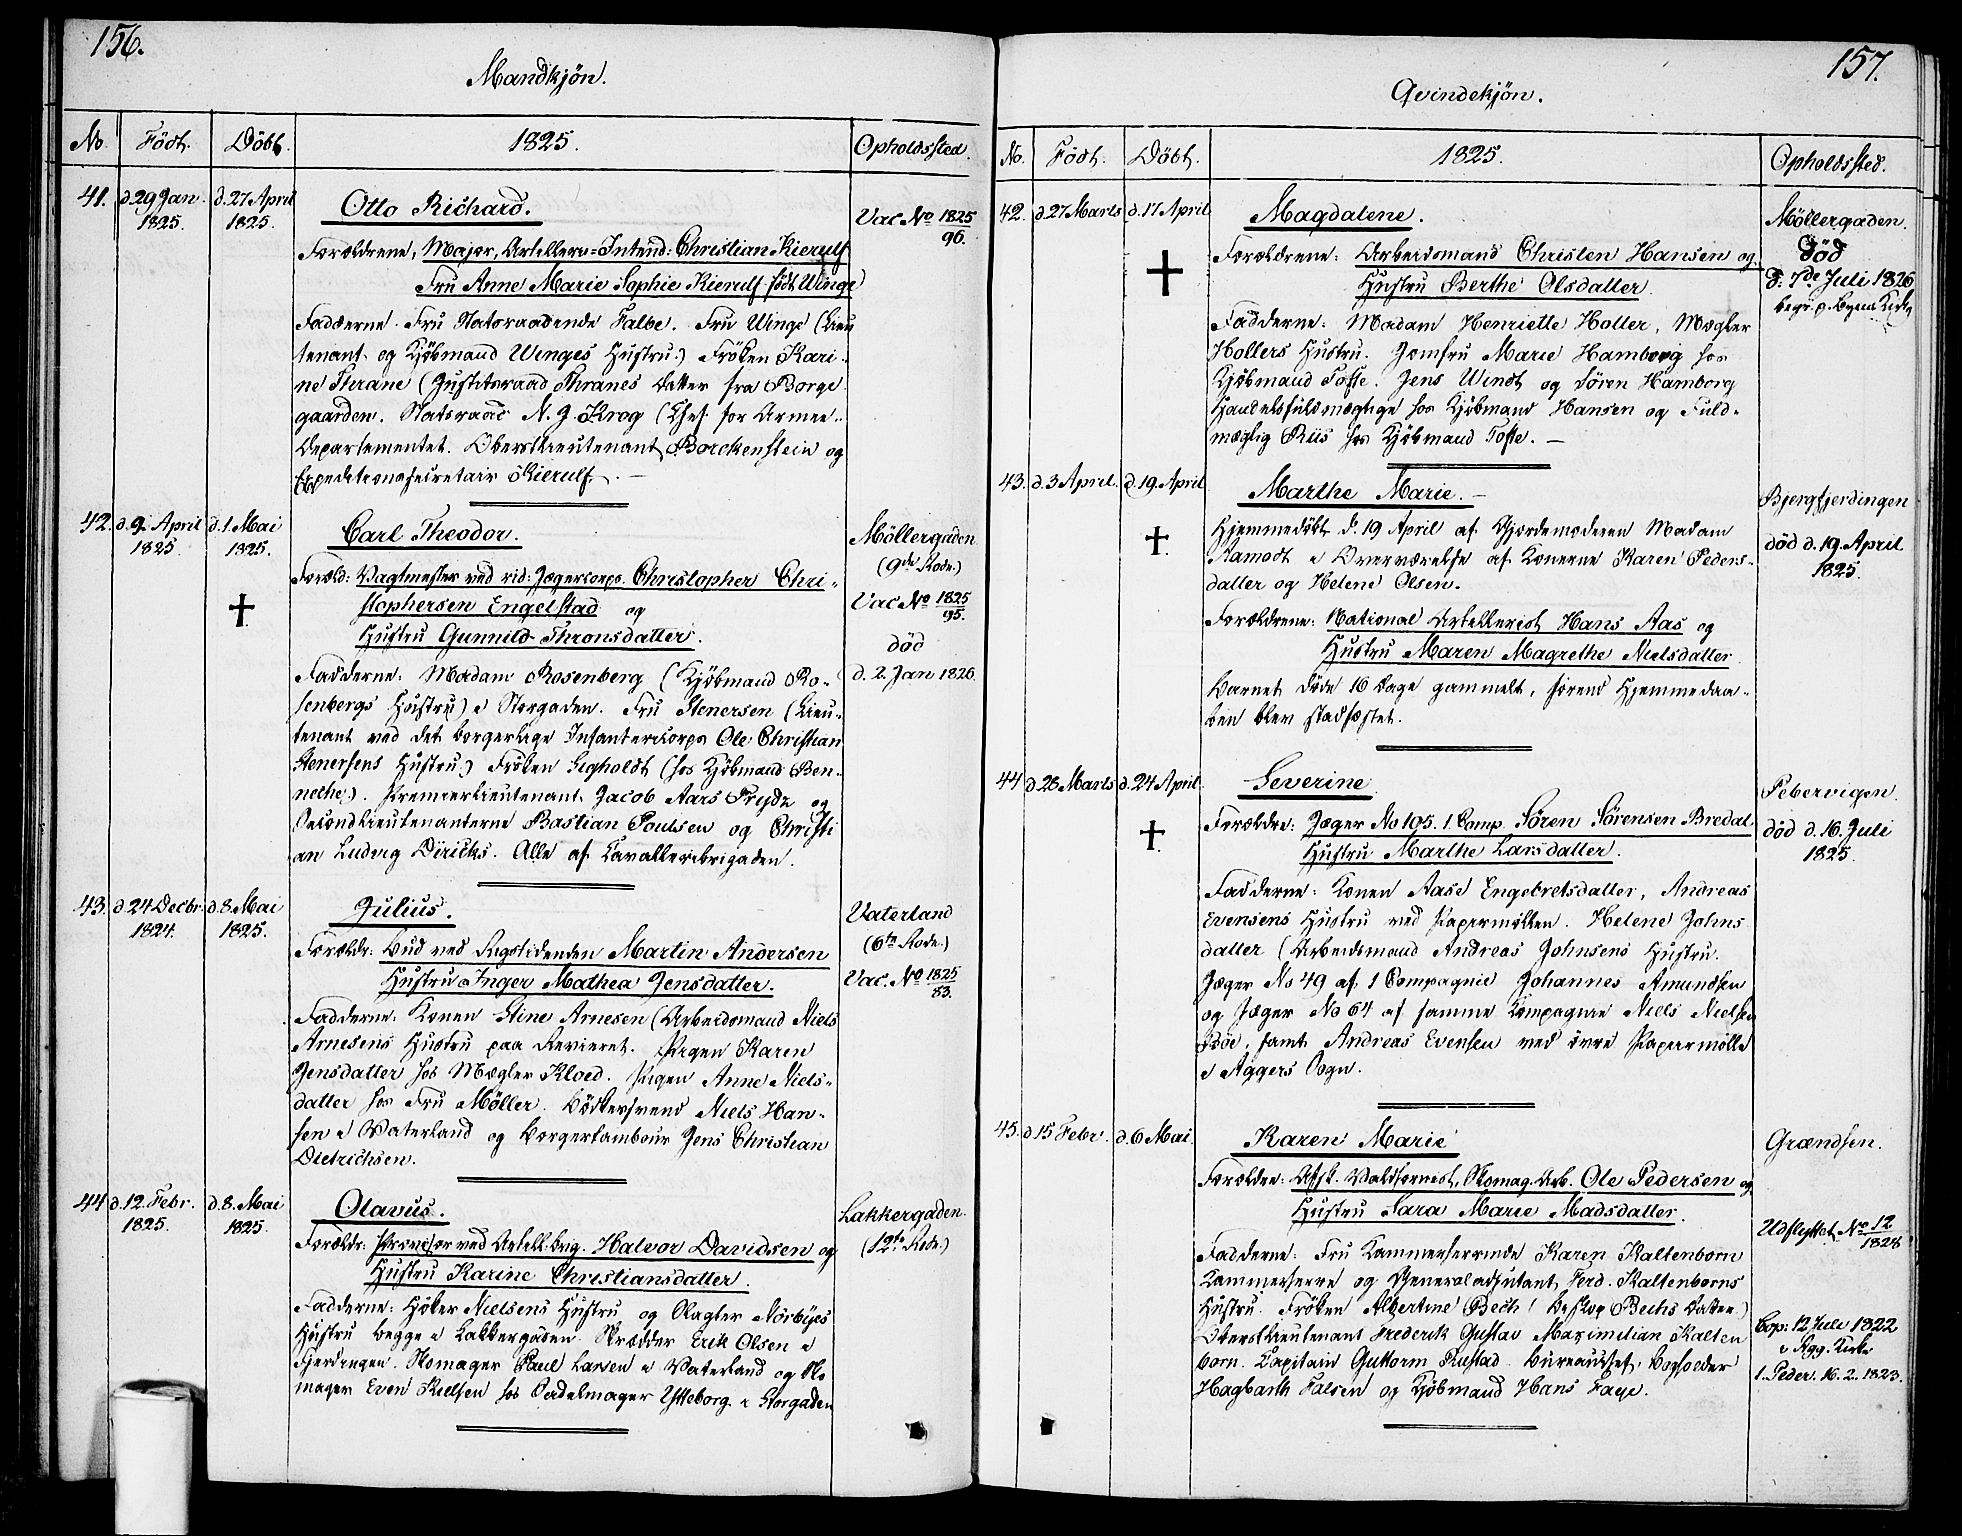 156.
Mandkjön.
No. Födt. Döbt. 1825. Opholdssted.
41. d. 29 Jan. 1825. d. 27 April 1825. Otto Richard. Vac. No 1825/96.
Forældrene, Major, Artelleri-Intend: Christian Kierulf
Fru Anne Marie Sophie Kierulf født Winge
Fadderne. Fru Statsraadinde Falbe. Fru Winge (Lieu
tenant og Kjöbmand Winges Hustru.) Fröken Kari-
ne Thrane (Justitsraad Thranes Datter fra Borge
gaarden. Statsraad N. J. Krog (Chef for Armee-
Departementet. Oberstlieutenant Borckenstein og
Expeditionssecretair Kierulf. —
42. d. 9. April 1825. d. 1. Mai 1825. Carl Theodor. Möllergaden (9de Rode.)
Foræld: Vagtmester ved rid: Jægercorps. Christopher Chri-
stophersen Engelstad og
Hustru Gunnild Thronsdatter.
Vac No 1825/95.
død
d. 2. Jan 1826.
Fadderne. Madam Rosenberg (Kjöbmand Ro-
senbergs Hustru) i Storgaden. Fru Stenersen (Lieu-
tenant ved det borgerlige Infantericorps Ole Christian
Stenersens Hustru.) Fröken Segholdt (hos Kjöbmand Ben-
neche). Premierlieutenant Jacob Aars Frydz og
Secondlieutenanterne Bastian Poulsen og Christi
an Ludvig Diricks. Alle af Cavalleribrigaden.
43. d. 24 Decbr. 1824. d. 8. Mai 1825. Julius. Vaterland (6te Rode.)
Forældr: Bud ved Rigstidenden Martin Andersen
Hustru Inger Mathea Jensdatter.
Vac. No 1825/83.
Fadderne: Konen Stine Arnesen (Arbeidsmand Niels
Arnesens Hustru paa Revieret. Pigen Karen
Jensdatter hos Mægler Kloed. Pigen Anne Niels-
datter hos Fru Möller. Bödkersvend Niels Han-
sen i Vaterland og Borgertambour Jens Christian
Dietrichsen.
44 d. 12. Febr. 1825. d. 8. Mai 1825. Olavus. Lakkergaden. (12te Rode.)
Forældr: Provisor ved Artell. brig. Halvor Davidsen og
Hustru Karine Christiansdatter.
Fadderne: Höker Nielsens Hustru og Slagter Nörbyes
Hustru begge i Lakkergaden. Skrædder Erik Olsen i
Fjerdingen. Skomager Paul Larsen i Vaterland og Sko
mager Even Kielsen hos Sadelmager Ytteborg i Storgaden
157.
Qvindekjön.
No. Födt. Döbt. 1825. Opholdssted.
42. d. 27 Marts d. 17 April Magdalene. Möllergaden.
Død
d: 7de Juli 1826
begr. p. Byens Kirkg
Forældrene: Arbeidsmand Christen Hansen og
Hustru Berthe Olsdatter.
Fadderne: Madam Henriette Holter, Mægler
Holters Hustru. Jomfru Marie Hamborg hos
Kjöbmand Tofte. Jens Windt og Sören Hamborg
Handelsfuldmægtige hos Kjöbmand Hansen og Fuld-
mægtig Riis hos Kjöbmand Tofte. —
43. d. 3 April. d. 19. April Marthe Marie. — Bjergfjerdingen
død d. 19. April
1825.
Hjemmedöbt d. 19 April af Gjordemoderen Madam
Aamodt i Overværelse af Konerne Karen Peders-
datter og Helene Olsen.
Forældrene: National Artellerist Hans Aas og
Hustru Maren Magrethe Nielsdatter.
Barnet döde 16 Dage gammelt, förend Hjemmedaa-
ben blev stadfæstet.
44 d. 26 Marts d. 24 April. Severine. Pebervigen.
død d. 16. Juli
1825.
Forældre: Jæger No 195. 1. Comp. Sören Sörensen Bredal.
Hustru Marthe Larsdatter.
Fadderne: Konen Aase Engebretsdatter, Andreas
Evensens Hustru ved Papirmöllen. Helene Johns
datter (Arbeidsmand Andreas Johnsens Hustru.
Jæger No 49 af 1 Compagnie Johannes Amundsen
og Jæger No 64 af samme Kompagnie Niels Nielsen
Böe, samt Andreas Evensen ved övre Papirmölle
i Aggers Sogn.
45. d. 15 Febr. d. 6 Mai. Karen Marie Grændsen.
Forældre: Afsk. Valdhornist, Skomag. Arb. Ole Pedersen og
Hustru Sara Marie Madsdatter.
Udflyttet No 12/1828
Fadderne: Fru Kammerherrinde Karen Kaltenborn
Kammerherre og Generaladjutant Ferd. Kaltenborns
Hustru. Fröken Albertine Bech (Biskop Bechs Datter.)
Oberstlieutenant Frederik Gustav Maximilian Kalten
born. Capitain Guttorm Rustad. Bureauchef, Bogholder
Hagbarth Falsen og Kjöbmand Hans Faye.
Cop: 12 Juli 1822
i Agg. Kirke
1. Peder. 16. 2. 1823.